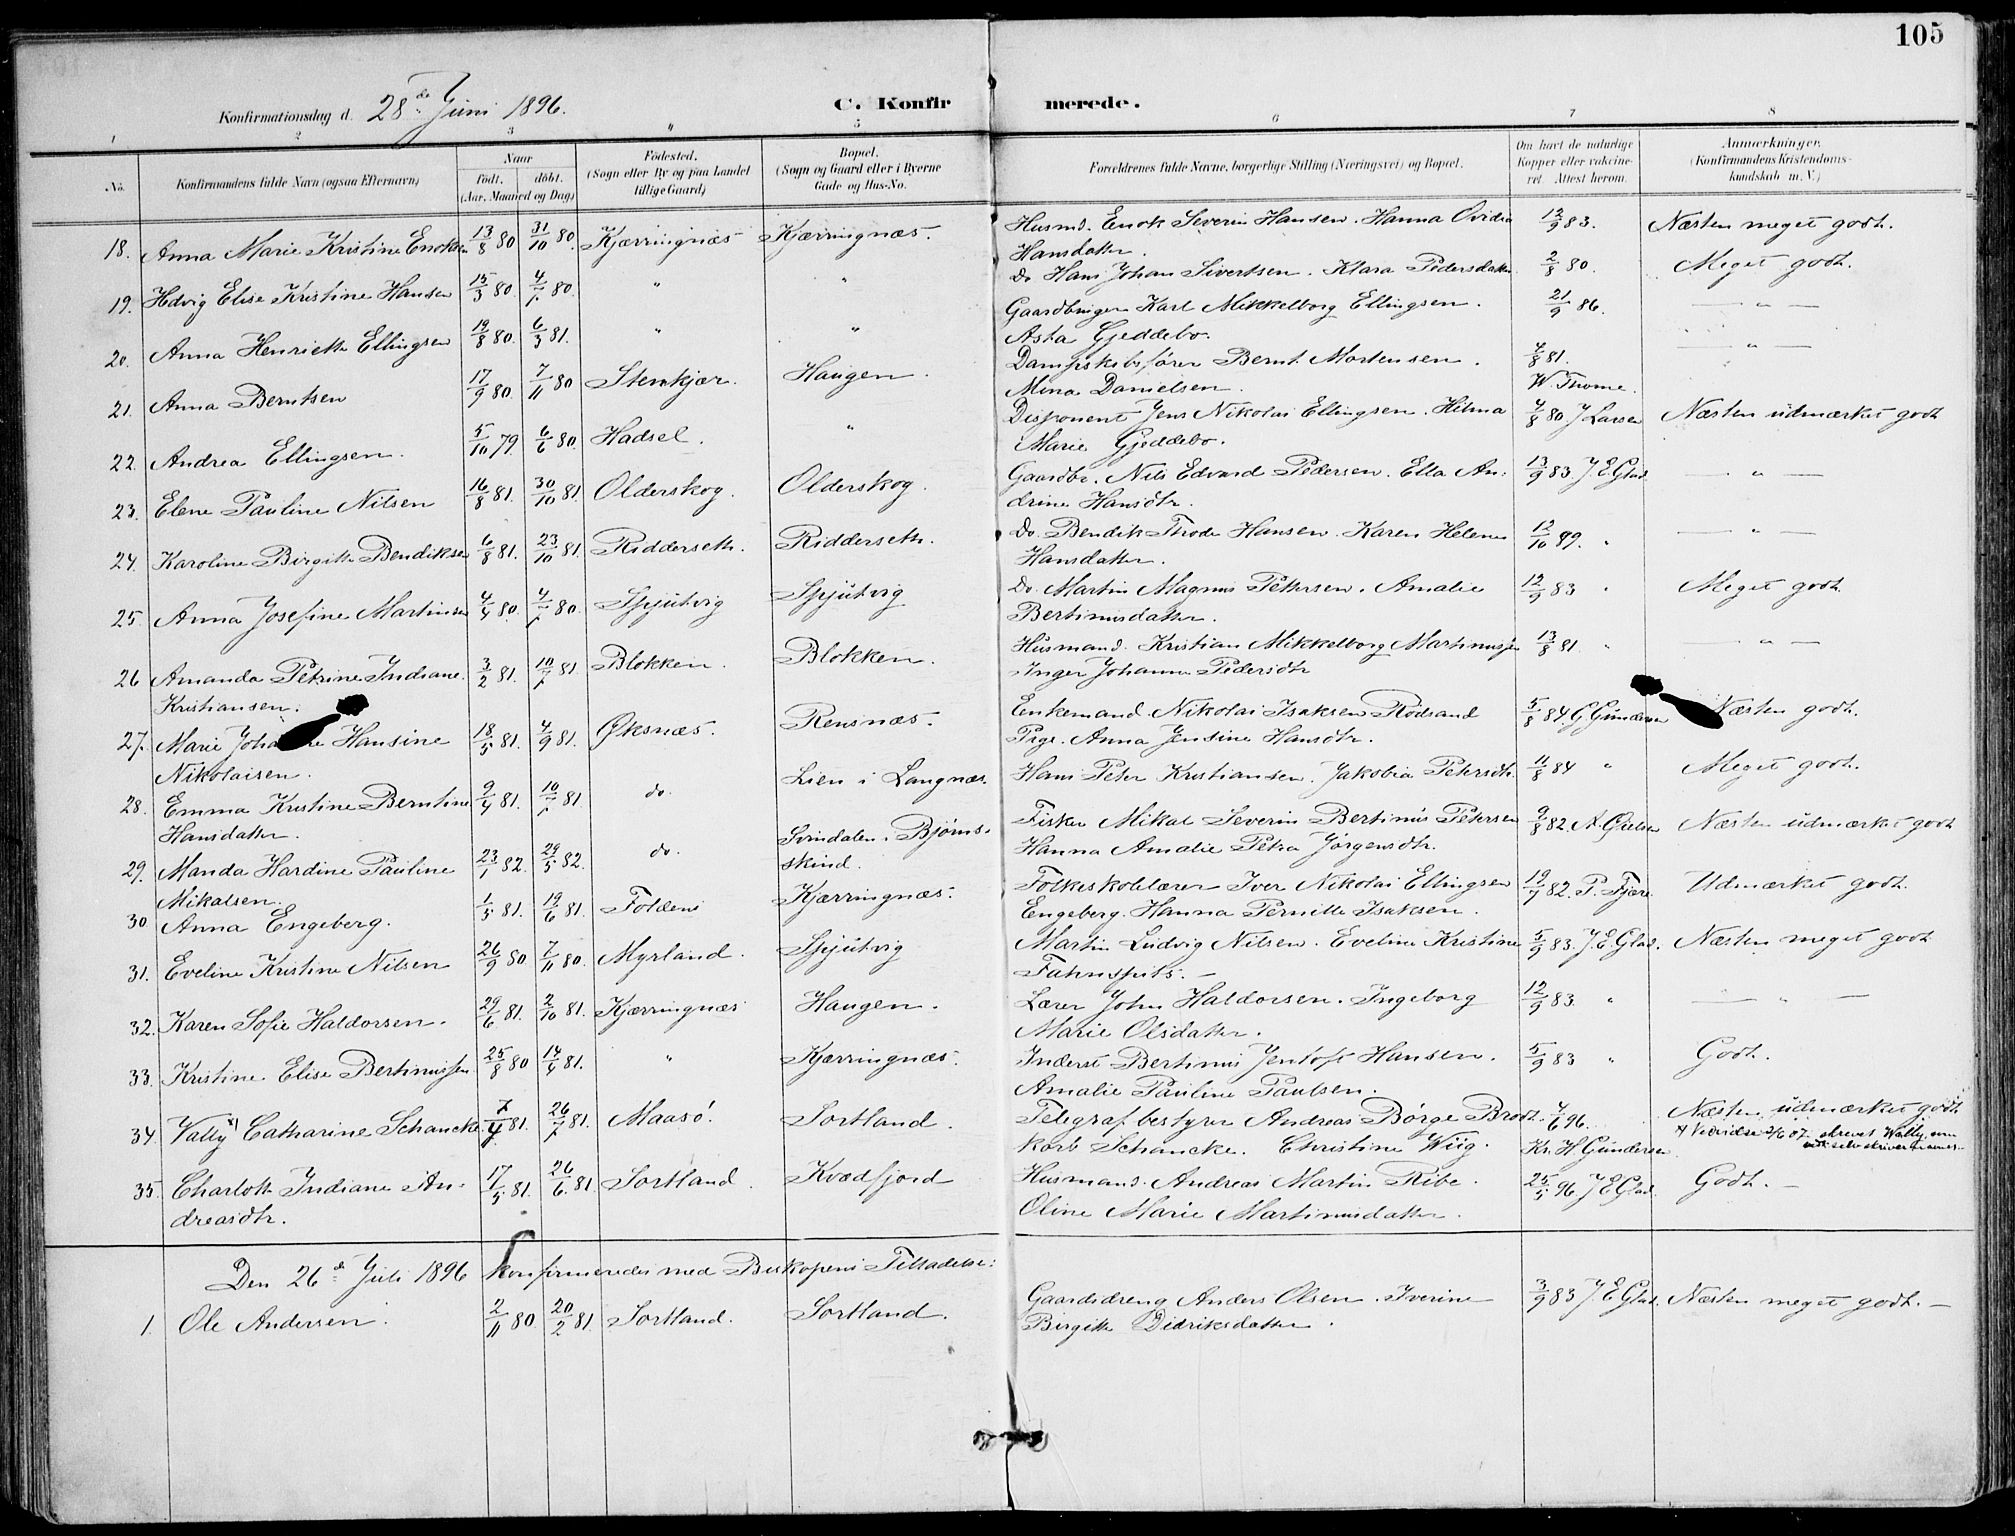 105
Konfirmationsdag d. 28de Juni 1896. C. Konfirmerede.
1 2 3 4 5 6 7 8
No. Konfirmandens fulde Navn (ogsaa Efternavn) Naar født. døbt. (Aar, Maaned og Dag) Fødested. (Sogn eller By og paa Landet tillige Gaard) Bopæl. (Sogn og Gaard eller i Byerne Gade og Hus-No. Forældrenes fulde Navne, borgerlige Stilling (Næringsvei) og Bopæl. Om havt de naturlige Kopper eller vaccineret. Attest herom. Anmærkninger. (Konfirmandens Kristendomskundskab m. V.)
18. Anna Marie Kristine Enoksen 13/8 80 31/10 80. Kjærringnæs Kjærringnæs. Husmd. Enok Severin Hansen. Hanna Ovidia 12/9 83. Næsten meget godt.
Hansdatter.
19. Hdvig Elise Kristine Hansen 15/3 80. 4/7 80. " " Do Hans Johan Sivertsen. Klara Pedersdatter 2/8 80. Meget godt.
20. Anna Henriette Ellingsen 19/8 80. 6/3 81. " " Gaardbruger Karl Mikkelborg Ellingsen. 21/9 86. — " —
Asta Gjeddebo.
21. Anna Berntsen 17/9 80. 7/11 80 Stenkjær. Haugen. Dampskibsfører Bernt Mortensen. 4/8 81. — " —
Mina Danielsen. W. Thome.
22. Andrea Ellingsen. 5/10 79. 6/6 80. Hadsel. " Disponent Jens Nikolai Ellingsen. Hilma 4/8 80 J Larsen Næsten udmærket godt
Marie Gjeddebo.
23. Elene Pauline Nilsen 16/8 81. 30/10 81. Olderskog. Olderskog. Gaardbr. Nils Edvard Pedersen. Ella An- 13/9 83. J E Glad. — " —
drine Hansdtr.
24. Karoline Birgitte Bendiksen 6/8 81. 23/10 81. Ridderseth. Ridderseth. Do. Bendik Thode Hansen. Karen Helene 12/10 89. " — " —
Hansdatter.
25. Anna Josefine Martinsen 4/4 80. 4/7 80. Spjutvig Spjutvig Do. Martin Magnus Pettersen. Amalie 12/9 83 " Meget godt.
Bertinusdatter.
26 Amanda Petrine Indiane 3/2 81. 10/7 81. Blokken. Blokken. Husmand. Kristian Mikkelborg Martinussen 13/8 81. " — " —
Kristiansen. Inger Johanna Pedersdtr
27. Marie Johanne Hansine 18/5 81. 4/9 81. Øksnæs. Rensnæs. Enkemand. Nikolai Isaksen Rødsand 5/8 84. G. Gundersen Næsten godt.
Nikolaisen. Pige. Anna Jensine Hansdtr.
28. Emma Kristine Berntine 9/4 81. 10/7 81. do. Lien i Langnæs. Hans Peter Kristiansen. Jakobia Petersdtr. 11/8 84 " Meget godt.
Hansdatter.
29. Manda Hardine Pauline 23/1 82. 29/5 82. do. Svindalen i Bjørnskind. Fisker Mikal Severin Bertinus Petersen 9/8 82. A. Gielsen Næsten udmærket godt
Mikalsen. Hanna Amalie Petra Jørgensdtr.
30 Anna Engeberg. 1/5 81. 19/6 81. Folden Kjærringnæs. Folkeskolelærer Iver Nikolai Ellingsen 19/7 82. P. Fjære Udmærket godt.
Engeberg. Hanna Pernille Isaksen.
31. Eveline Kristine Nilsen 26/9 80 7/11 80. Myrland. Spjutvig Martin Ludvig Nilsen. Eveline Kristine 5/9 83. J. E. Glad. Næsten meget godt.
Fahnspits. —
32. Karen Sofie Haldorsen. 29/6 81. 2/10 81. Kjærringnæs Haugen. Lærer John Haldorsen. Ingeborg 12/9 83. " — " —
Marie Olsdatter.
33. Kristine Elise Bertinussen 25/8 80 14/4 81. " Kjærringnæs. Inderst Bertinus Jentoft Hansen. 5/9 83 " Godt.
Amalie Pauline Paulsen.
34. Vally x) Catharine Schancke 7/4 81. 26/7 81. Maasø. Sortland. Telegrafbestyrer Andreas Børge Brodt- 4/6 96. Næsten udmærket godt
korb Schancke. Christine Wiig. Kr. H. Gundersen
35. Charlotte Indiane An- 17/5 81. 26/6 81 Sortland. Kvædfjord Husmand. Andreas Martin Ribe. 25/5 96 J E Glad. Godt. —
dreasdtr. Oline Marie Martinusdatter.
Den 26de Juli 1896 konfirmeredes med Biskopens Tilladelse:
1. Ole Andersen. 2/11 80 20/2 81. Sortland. Sortland. Gaardsdreng Anders Olsen. Iverine 3/9 83 J. E. Glad. Næsten meget godt. —
Birgitte Didriksdatter.